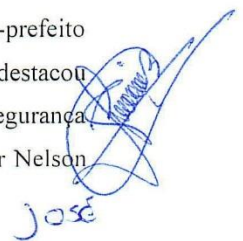 -prefeito
destacou
egurança
r Nelson
José